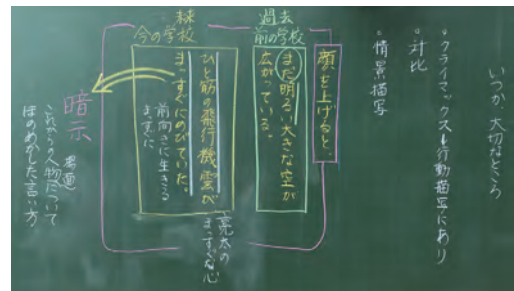 いつか、大切なところ
・クライマックス 行動描写にあり
・対比
・情景描写
顔を上げると、
過去
前の学校
まだ明るい大きな空が
広がっている。
未来
今の学校
ひと筋の飛行機雲が
まっすぐにのびていた。
前向きに生きる
まっすぐに
亮太の
まっすぐな心
暗示
場面
これからの人物について
ほのめかした言い方